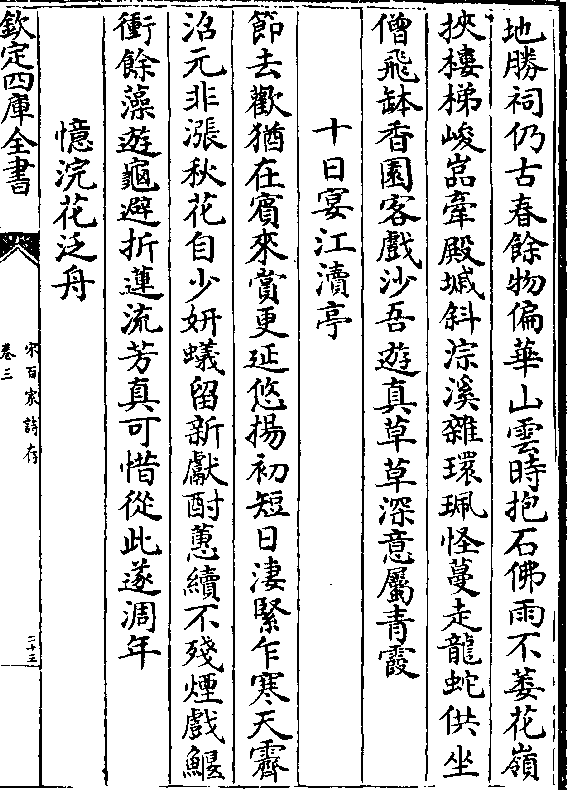 地勝祠仍古春餘物偏華山雲時抱石佛雨不萎花嶺
挾樓梯峻嵓牽殿堿斜淙溪雜環珮怪蔓走龍蛇供坐
僧飛缽香園客戲沙吾遊真草草深意屬青霞
十日宴江瀆亭
節去歡猶在賓來賞更延悠揚初短日淒緊乍寒天霽
沼元非漲秋花自少妍蟻留新獻酎蕙續不殘煙戲鰋
衝餘藻遊龜避折蓮流芳真可惜從此遂凋年
憶浣花泛舟
欽定四庫全書
宋百家詩存
卷三
三十三